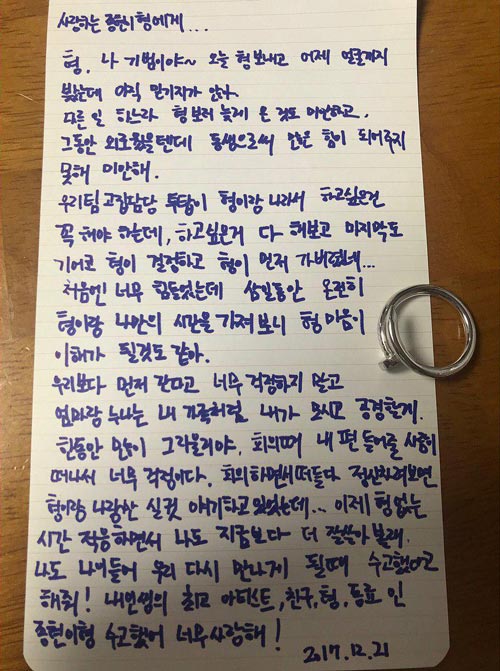 사랑하는 종현이형에게...
형. 나 기범이야~ 오늘 형보내고 어제 얼굴까지
봤는데 아직 믿기지가 않아.
다른 일 하느라 형 보러 늦게 온 것도 미안하고.
그동안 외로웠을텐데 동생으로써 많은 힘이 되어주지
못해 미안해.
우리팀 고집담당 투탑이 형이랑 나라서 하고싶은건
꼭 해야 하는데, 하고싶은거 다 해보고 마지막도
기어코 형이 결정하고 형이 먼저 가버렸네...
처음엔 너무 힘들었는데 삼일동안 온전히
형이랑 나만의 시간을 가져보니 형 마음이
이해가 될것도 같아.
우리보다 먼저 간다고 너무 걱정하지 말고
엄마랑 누나는 내 가족처럼 내가 모시고 공경할게.
한동안 많이 그리울거야. 회의때 내 편 들어줄 사람이
떠나서 너무 걱정이다. 회의하면서 떠들다 정신차려보면
형이랑 나랑만 실컷 얘기하고 있었는데... 이제 형 없는
시간 적응하면서 나도 지금보다 더 잘살아 볼래.
나도 나이들어 우리 다시 만나게 될때 수고했다고
해줘! 내인생의 최고 아티스트, 친구, 형, 동료 인
종현이형 수고했어 너무 사랑해!
2017.12.21